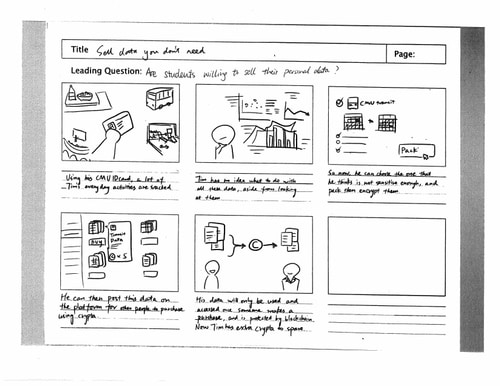 Title Sell data you don't need
Page:
Leading Question: Are students willing to sell their personal data?
CMU transit
Pack
Using his CMU ID card, a lot of
Tim's everyday activities are tracked
Tim has no idea what to do with
all these data, aside from looking
at them.
So now he can choose the one that
he thinks is not sensitive enough, and
pack then encrypt them.
Transit
Data
BUY
C x 5
C
He can then post this data on
the platform for other people to purchase
using crypto
His data will only be used and
accessed once someone makes a
purchase, and is protected by blockchain.
Now Tim has extra crypto to spare.